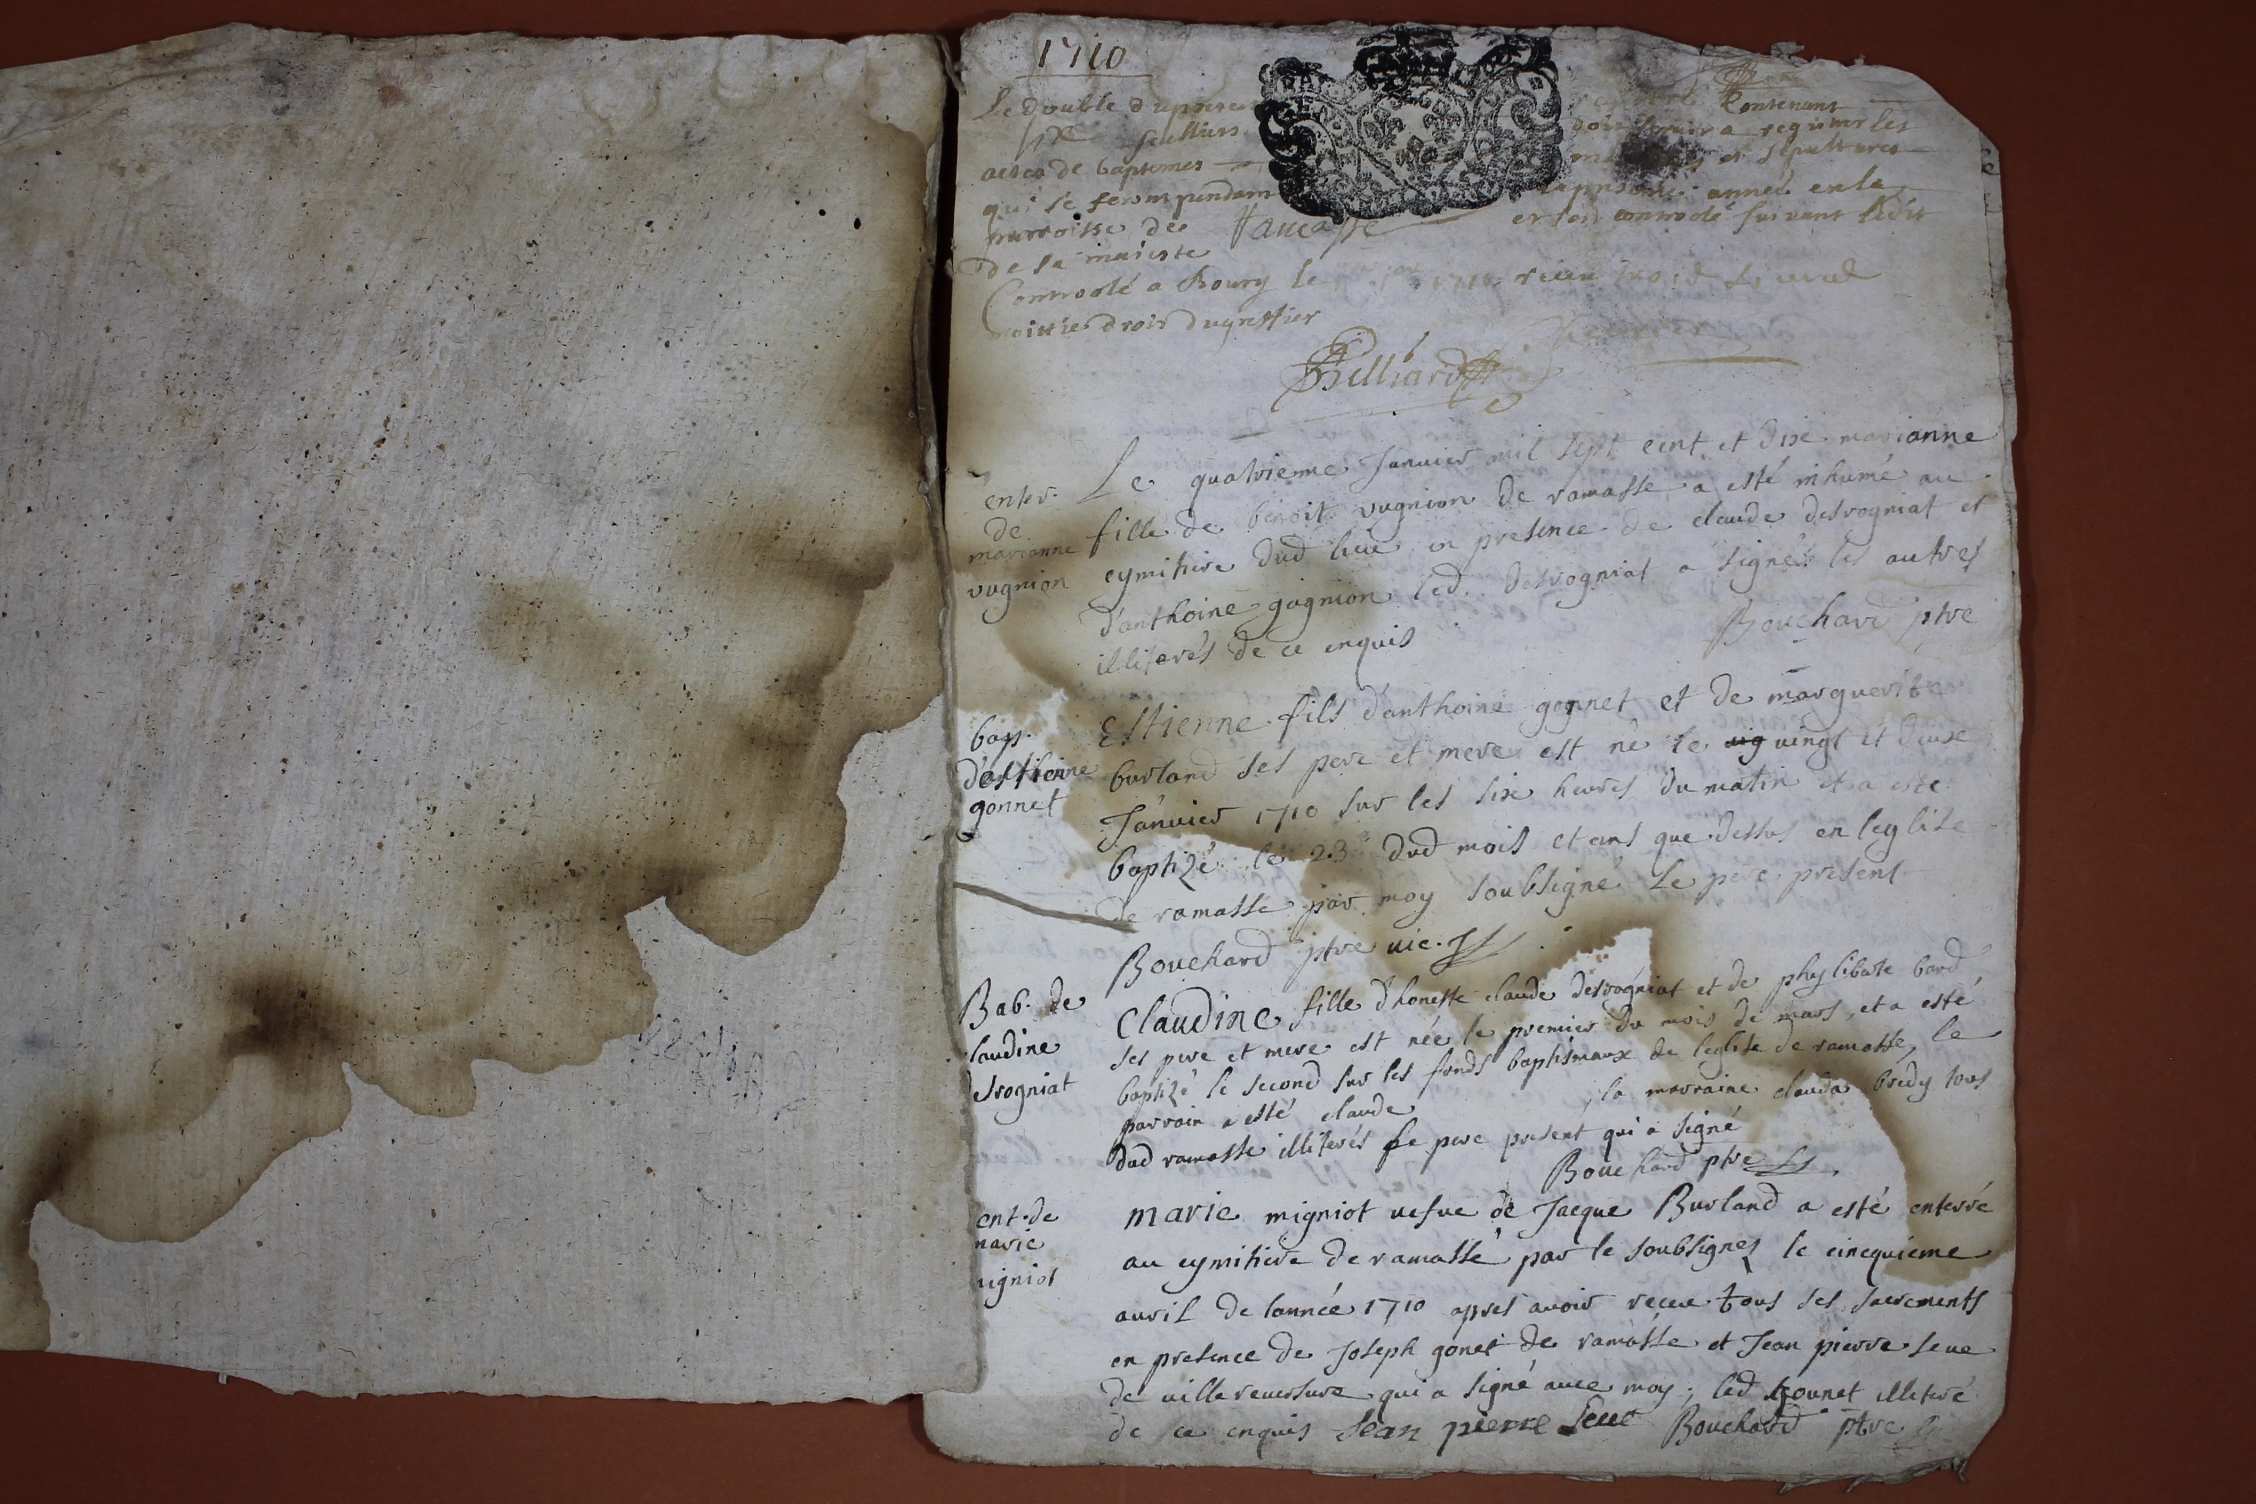 1710
Le double du present registre Contenant
six feulliets pour servir a registrer les
actes de baptemes mariages et sepultures
qui se feront pendant la presente année en la
parroisse de Ramasse et sera controolé suivant ledit
de sa maieste
Controolé a Bourg le 1710 receu trois livres
moittie droit du greffier
Billiard
enter.
de
marianne
vugnion
Le quatrieme Januier mil sept cent et dix marianne
fille de benoit vugnion de ramasse a esté inhumé au
cymitiere dud lieu en presence de claude desrogniat et
d'anthoine gognion led. desrogniat a signé les autres
illiterés de ce enquis
Bouchard ptre
bap.
d'esthienne
gonnet
Estienne fils d'anthoine gonnet et de marguerite
burland ses pere et mere est né le vingt et deuxe
Januier 1710 sur les six heures du matin et a este
baptizé le 23 dud mois et ans que dessus en leglise
de ramasse par moy soubsigné Le pere present
Bouchard ptre vic.
Bab. de
laudine
desrogniat
Claudine fille d'honeste claude desrogniat et de phylibate bard
ses pere et mere est née le premier du mois de mars, et a esté
baptizé le second sur les fonds baptismaux de leglise de ramasse, le
parrain a esté claude ; la marraine clauda bredy tous
dud ramasse illiterés le pere present qui a signé
Bouchard ptre
ent. de
marie
migniot
marie migniot uesue de Jacque Burland a esté enterré
au cymitiere de ramasse par le soubsignez le cincquieme
auril de lannée 1710 apres auoir receu tous ses sacrements
en presence de Joseph gonet de ramasse et Jean pierre seue
de uillereuersure qui a signé auec moy ; led gounet illiteré
de ce enquis Jean pierre seue Bouchard ptre